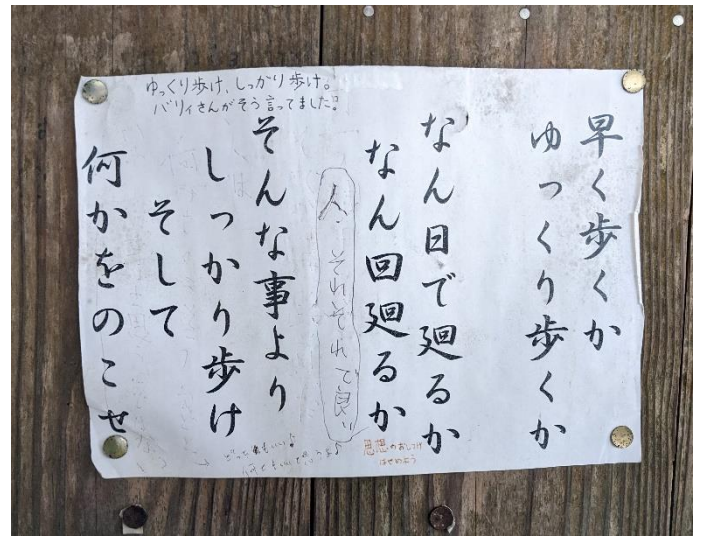 早く歩くか
ゆっくり歩くか
なん日で廻るか
なん回廻るか
人、それぞれで良い
そんな事より
しっかり歩け
そして
何かをのこせ
ゆっくり歩け、しっかり歩け。
バリィさんがそう言ってました。
思想のおしつけ
はせめよう